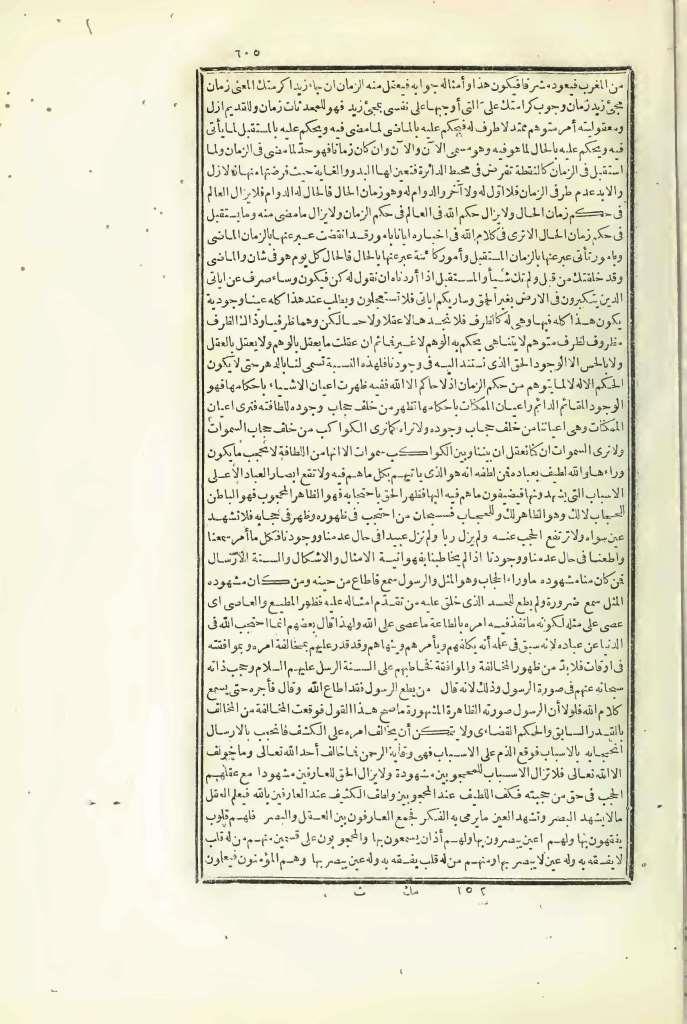 ٦٠٥
من المغرب فيعود مشرقا فيكون هذا وأمثاله جوابه فيعقل منه الزمان ان جاء زيد اكرمتك المعنى زمان
مجىء زيد زمان وجوب كرامتك على التى أوجبها على نفسى بمجىء زيد فهو للمحدثات زمان وللقديم ازل
ومعقوليته أمر متوهم ممتد لا طرف له فيحكم عليه بالماضى لما مضى فيه ويحكم عليه بالمستقبل لما يأتى
فيه ويحكم عليه بالحال لما هو فيه وهو مسمى الآن والآن وان كان زمانا فهو حد لما مضى فى الزمان ولما
استقبل فى الزمان كالنقطة تفرض فى محيط الدائرة فتعين لها البدء والغاية حيث فرضتها منها فالازل
والابد عدم طرفى الزمان فلا اول له ولا آخر والدوام له وهو زمان الحال فالحال له الدوام فلا يزال العالم
فى حكم زمان الحال ولا يزال حكم الله فى العالم فى حكم الزمان ولا يزال ما مضى منه وما يستقبل
فى حكم زمان الحال الا ترى فى كلام الله فى اخباره ايانا بامور قد انقضت عبر عنها بالزمان الماضى
وبامور تأتى عبر عنها بالزمان المستقبل وأمور كائنة عبر عنها بالحال فالحال كل يوم هو فى شان والماضى
وقد خلقتك من قبل ولم تك شيأ والمستقبل اذا أردناه ان نقول له كن فيكون وسأصرف عن اياتى
الذين يتكبرون فى الارض بغير الحق وساريكم اياتى فلا تستعجلون ويطلب عند هذا كله عينا وجودية
يكون هذا كله فيها وهى له كالظرف فلا نجدها لا عقلا ولا حسا لكن وهما ظرفيا وذلك الظرف
مظروف لظرف متوهم لا يتناهى يحكم به الوهم لا غير فما ثم ان عقلت ما يعقل بالوهم ولا يعقل بالعقل
ولا بالحس الا الوجود الحق الذى نستند اليه فى وجودنا فلهذه النسبة تسمى لنا بالدهر حتى لا يكون
الحكم الا له لا لما يتوهم من حكم الزمان اذ لا حاكم الا الله ففيه ظهرت اعيان الاشياء باحكامها فهو
الوجود القائم الدائم واعيان الممكنات باحكامها تظهر من خلف حجاب وجوده للطافته فنرى اعيان
الممكنات وهى اعياننا من خلف حجاب وجوده ولا نراه كما نرى الكواكب من خلف حجاب السموات
ولا نرى السموات ان كنا نعقل ان بيننا وبين الكواكب سموات الا انها من اللطافة لا تحجب ما يكون
وراءها والله لطيف بعباده فمن لطفه انه هو الذى ياتيهم بكل ما هم فيه ولا تقع ابصار العباد الا على
الاسباب التى يشهدونها فيضيفون ما هم فيه اليها فظهر الحق باحتجابه فهو الظاهر المحجوب فهو الباطن
للحجاب لا لك وهو الظاهر لك وللحجاب فسبحان من احتجب فى ظهوره وظهر فى حجابه فلا تشهد
عين سواه ولا ترتفع الحجب عنه ولم يزل ربا ولم نزل عبيدا فى حال عدمنا ووجودنا فكل ما أمر سمعنا
واطعنا فى حال عدمنا ووجودنا اذا لم يخاطبنا بفهوانية الامثال والاشكال والسنة الارسال
فمن كان منا مشهوده ما وراء الحجاب وهو المثل والرسول سمع فاطاع من حينه ومن كان مشهوده
المثل سمع ضرورة ولم يطع للحسد الذى خلق عليه من تقدم امثاله عليه فظهر المطيع والعاصى اى
عصى على مثله لكونه ما نفذ فيه امره بالطاعة ما عصى على الله ولهذا قال بعضهم انما احتجب الله فى
الدنيا عن عباده لانه سبق فى علمه أنه يكلفهم ويأمرهم وينهاهم وقد قدر عليهم بمخالفة امره وبموافقته
فى اوقات فلا بد من ظهور المخالفة والموافقة فخاطبهم على السنة الرسل عليهم السلام وحجب ذاته
سبحانه عنهم فى صورة الرسول وذلك لانه قال من يطع الرسول فقد اطاع الله وقال فأجره حتى يسمع
كلام الله فلولا أن الرسول صورته الظاهرة المشهورة ما صح هذا القول فوقعت المخالفة من المخالف
بالقدر السابق والحكم القضاءى ولا يتمكن أن يخالف امره على الكشف فانحجب بالارسال
انحجابه بالاسباب فوقع الذم على الاسباب فهى وقاية الرحمن فما خالف أحد الله تعالى وما خولف
الا الله تعالى فلا تزال الاسباب للمحجوبين مشهودة ولا يزال الحق للعارفين مشهودا مع عقلهم
الحجب فى حق من حجبته فكثف اللطيف عند المحجوبين ولطف الكثيف عند العارفين بالله فيعلم العقل
ما لا يشهد البصر وتشهد العين ما يرمى به الفكر فجمع العارفون بين العقل والبصر فلهم قلوب
يفقهون بها ولهم اعين يبصرون بها ولهم أذان يسمعون بها والمحجوبون على قسمين منهم من له قلب
لا يفقه به وله عين لا يبصر بها ومنهم من له قلب يفقه به وله عين يبصر بها وهم المؤمنون فيعلمون
١٥٢ مك ث